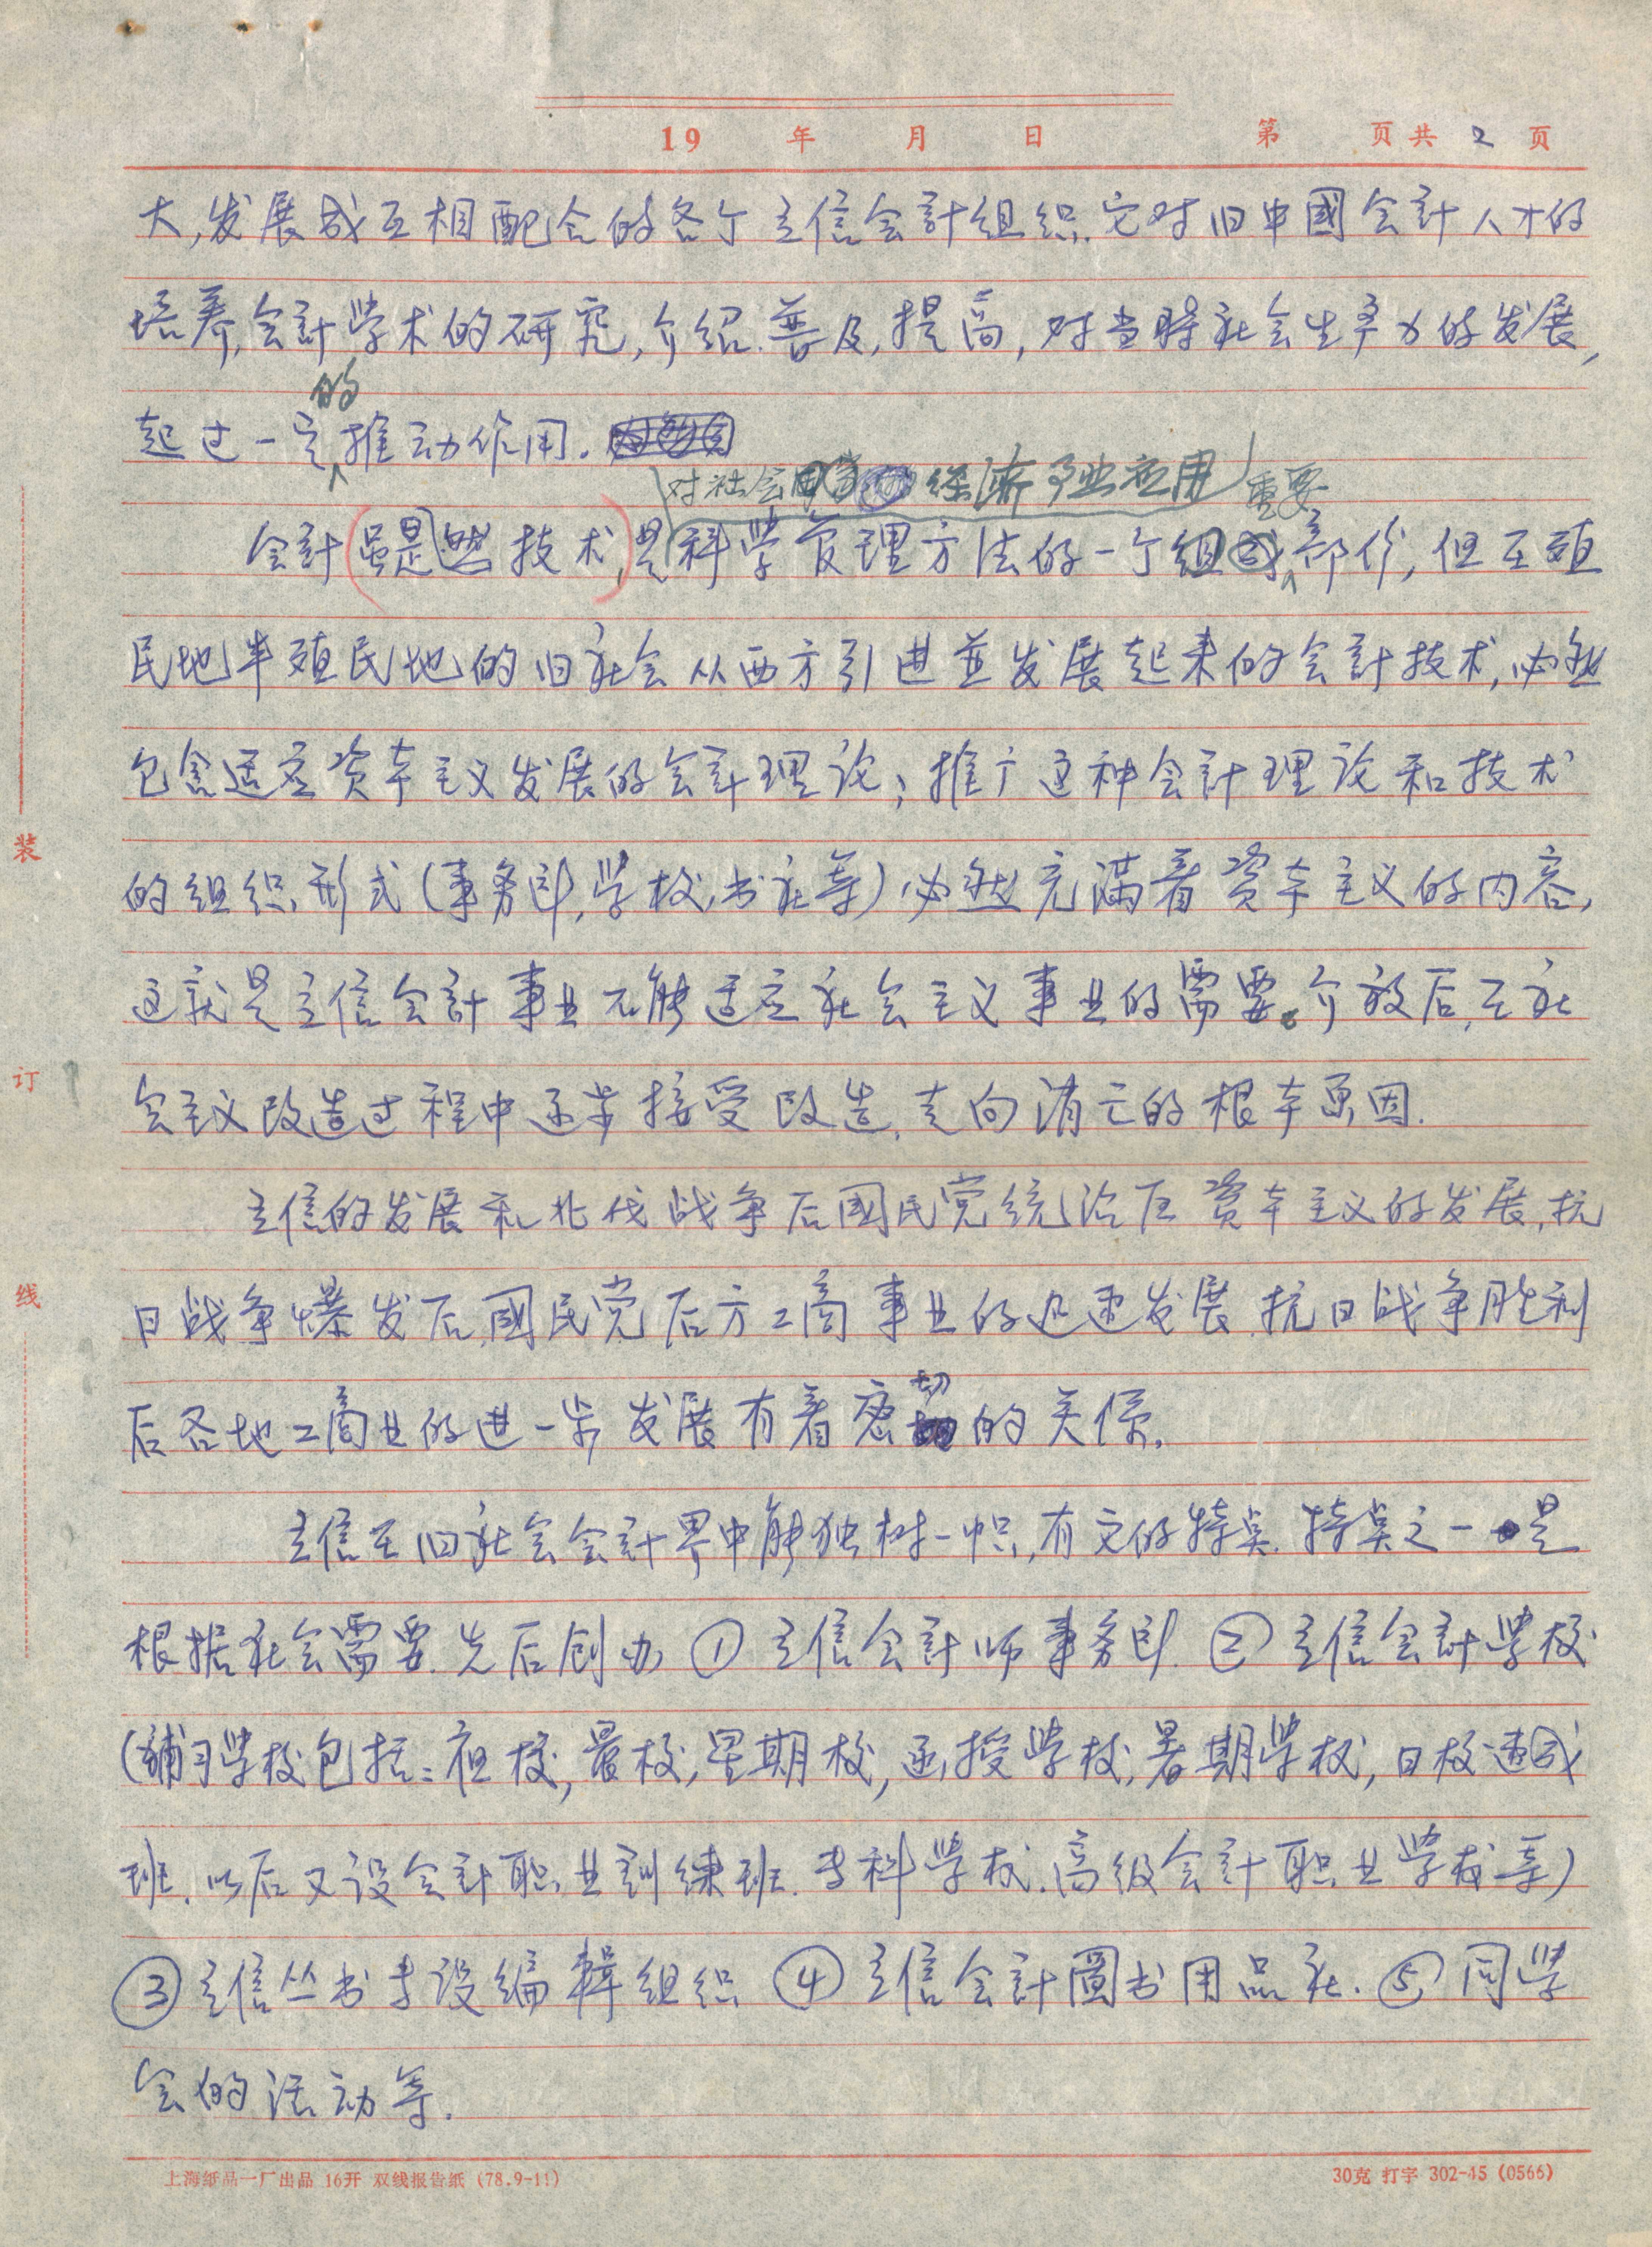 19 年 月 日 第 页共 2 页
大,发展成互相配合的各个立信会計组织.它对旧中國会計人才的
培养,会計学术的研究,介绍.普及,提高,对当時社会生产力的发展,
的
起过一定推动作用.
对社会 经济 应用 重要
会計(虽是然技术,)是科学管理方法的一个组成部份,但在殖
民地半殖民地的旧社会从西方引进並发展起来的会計技术,必然
包含适应资本主义发展的会計理论;推广这种会計理论和技术
的组织形式(事务所,学校,书社等)必然充滿着资本主义的内容,
这就是立信会計事业不能适应社会主义事业的需要。介放后,在社
会主义改造过程中逐步接受改造,走向消亡的根本原因.
立信的发展和北伐战争后國民党统治区资本主义的发展,抗
日战争爆发后,國民党后方工商事业的迅速发展.抗日战争胜利
切
后各地工商业的进一步发展有着密的关係.
立信在旧社会会計界中能独树一帜,有它的特奌.特奌之一是
根据社会需要.先后创办①立信会計师事务所.②立信会計学校
(辅习学校包括:夜校,晨校,星期校,函授学校,暑期学校,日校速成
班.以后又设会計职业訓練班.专科学校.高级会計职业学校等)
③立信丛书专设编輯组织④立信会計圖书用品社.⑤同学
会的活动等.
装
订
线
上海纸品一厂出品 16开 双线报告纸 (78.9-11)
30克 打字 302-45 (0566)